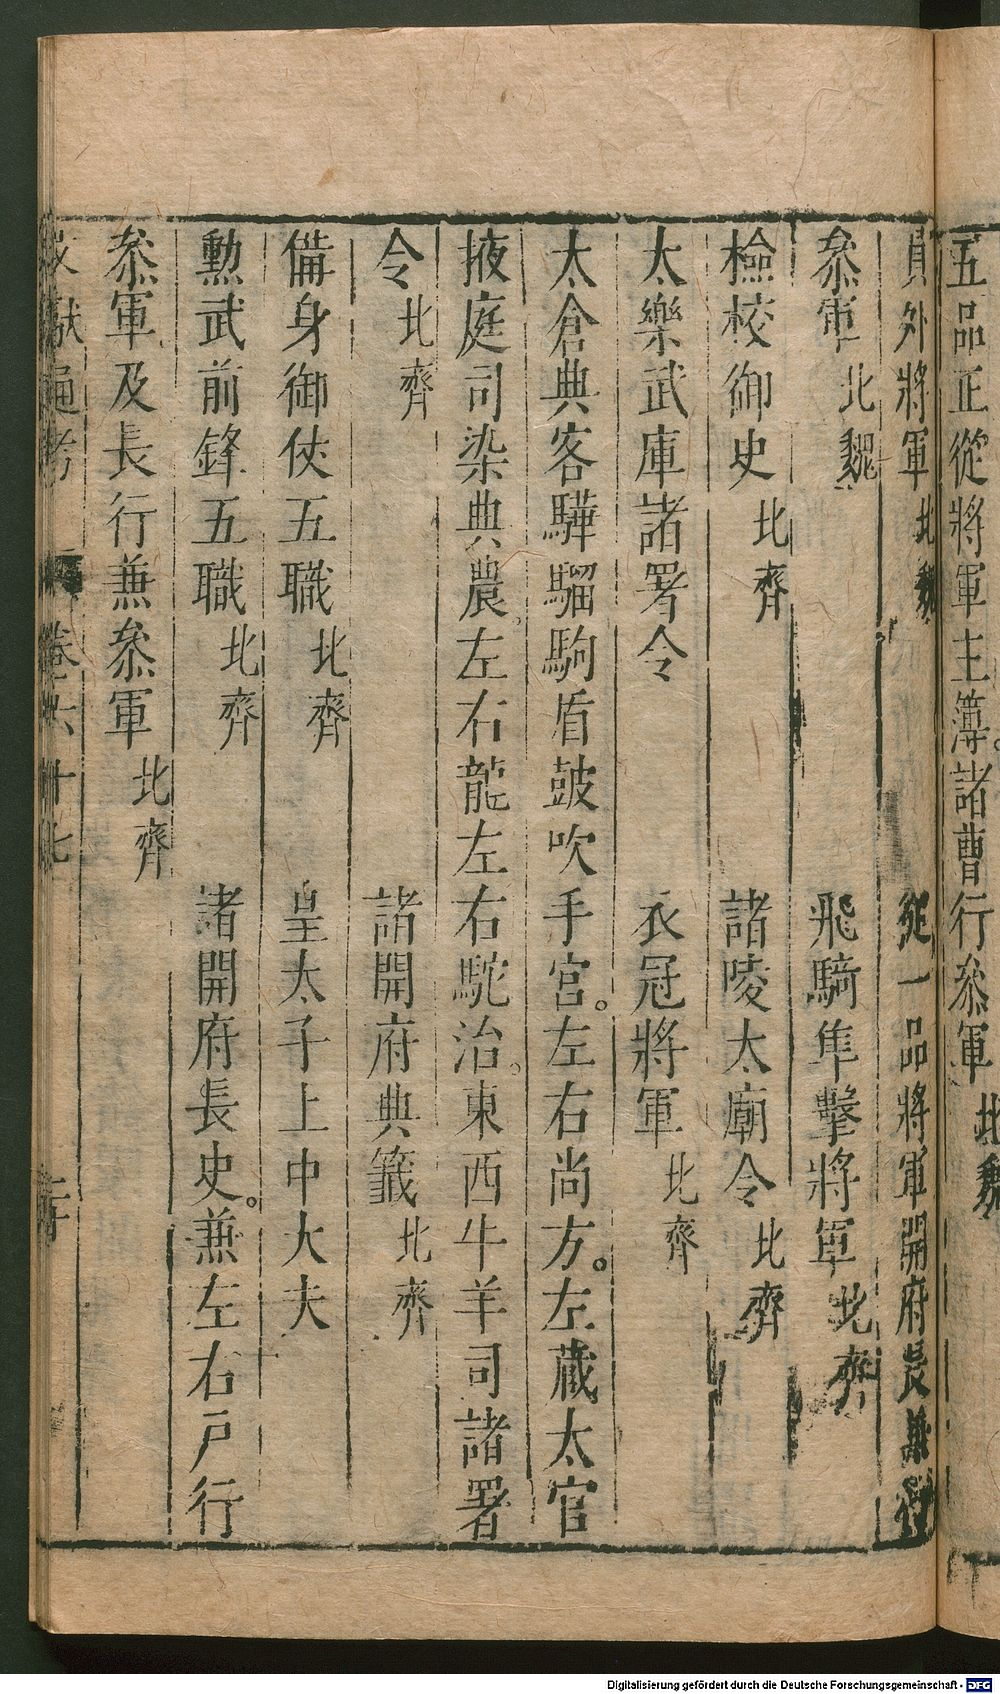 五品正從將軍主簿。諸曹行叅軍 北魏
員外將軍 北魏 從一品將軍開府長兼行
叅軍 北魏 飛騎隼擊將軍 北齊
檢校御史 北齊 諸陵太廟令 北齊
太樂武庫諸署令 衣冠將軍 北齊
太倉典客驊騮駒盾皷吹手宮。左右尚方。左藏太官
掖庭司染典農。左右龍左右駝治。東西牛羊司諸署
令 北齊 諸開府典籖 北齊
備身御仗五職 北齊 皇太子上中大夫
勲武前鋒五職 北齊 諸開府長史。兼左右戶行
叅軍及長行兼叅軍 北齊
獻通考 卷六十七
Digitalisierung gefördert durch die Deutsche Forschungsgemeinschaft - DFG